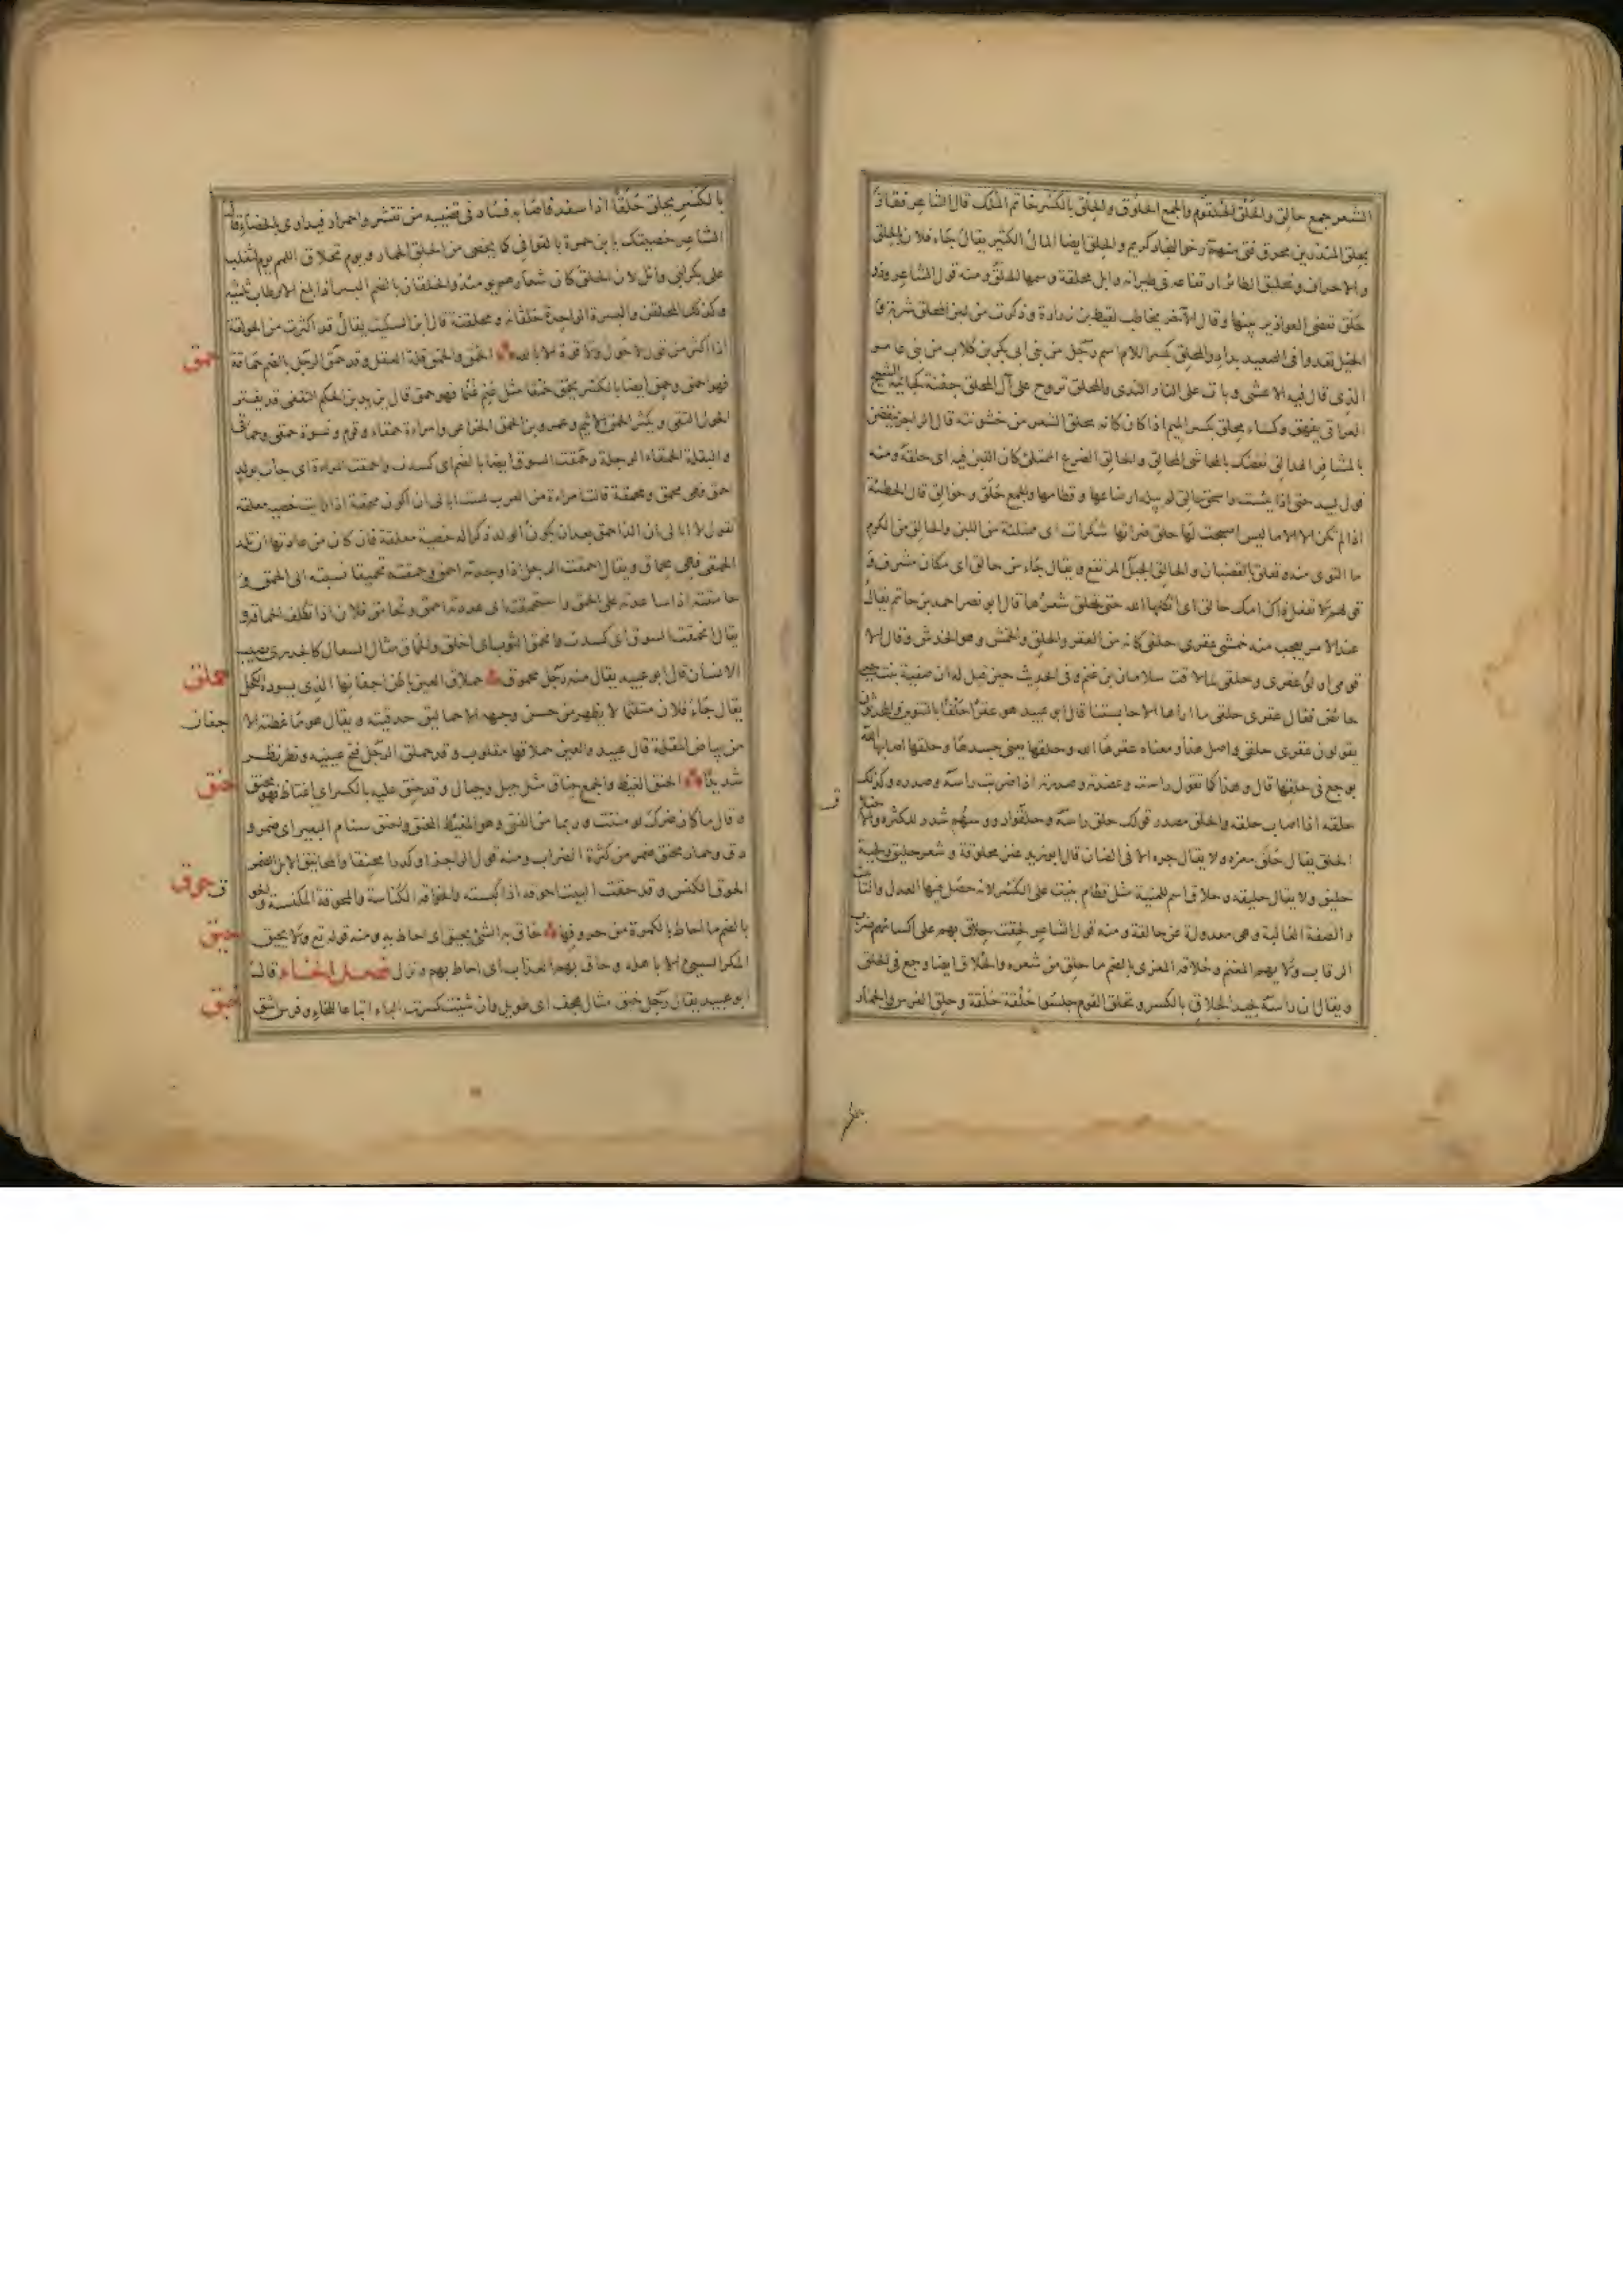 الشعر جمع حالق والحَلْق الحُلقوم والجمع الحلوق والحِلق بالكَسْر خاتم المُلك قال الشاعر ففاز
بحِلق المنذر بن محرق فتى منهم رخو النجاد كريم والحِلق ايضا المال الكثير يقال جَاء فلان بالحِلق
والاحراف وتحليق الطائر ارتفاعه فى طيرانه وابل محلقة وسمها الحلق ومنه قول الشاعر وذو
حَلَق تقضى العواذير بينها وقال الآخر يخاطب لقيط بن زرارة وذكرت من لبن المحلق شربة و
الخيل تعدوا فى الصعيد بداد والمحلق بكسر اللام اسم رَجُل من بنى ابى بكر بن كلاب من بنى عامر
الذى قال فيه الاعشى وبات على النار الندى والمحلق تروح على آل المحلق جفنة كجابية الشيخ
العراقى يفهق وكساء محلق بكسر الميم اذا كان كانه يحلق الشعر من خشونته قال الراجز ينفضن
بالمشافر الهدالق نفضك بالمحاشى المحالق والحالق الضرع الممتلئ كان اللبن فيه اى حلقه ومنه
قول لبيد حتى اذا يئست واسحق حالق لم يبله ارضاعها وفطامها والجمع حُلّق وحوالق قال الحطيئة
اذا لم تكن الا الاماليس اصبحت لها حلق ضراتها شكرات اى ممتلئة من اللبن والحالق من الكرم
ما التوى منه وتعلق بالقضبان والحالق الجبل المرتفع ويقال جاء من حالق اى مكان مشرف و
قولهم لا تفعل ذاك امك حالق اى اثكلها الله حتى تحلق شعرها قال ابو نصر احمد بن حاتم يقال
عند الامر يعجب منه خمشى عقرى حلقى كانه من العقر والحلق والخمش وهو الخدش وقال الا
قومى اولو عقرى وحلقى لما لاقت سلامان بن غنم وفى الحديث حين قيل له ان صفية بنت حيى
حائض فقال عقرى حلقى ما اراها الا حابستنا قال ابو عبيد هو عقرًا حَلْقًا بالتنوين والمحدثون
يقولون عقرى حلقى واصل هذا ومعناه عقرها الله وحلقها يعنى جسدها وحلقها اصابها الله
بوجع فى حلقها قال وهذا كما تقول راسته وعضدته وصدرته اذا ضربت راسه وصدره وكذلك
حلقه اذا اصاب حلقه والحلق مصدر قولك حلق راسَه وحلّقوا رووسهم شدد للكثرة والا
الحلق يقال حَلَق معزه ولا يقال جزه الا فى الضان قال ابو زيد عنز محلوقة وشعر حليق ولحية
حليق ولا يقال حليقة وحلاق اسم للمنية مثل قطام بنيت على الكَسْر لانه حصل فيها العدل والتانيث
والصفة الغالبة وهى معدولة عن حالقة ومنه قول الشاعر لحقت حلاق بهم على اكسائهم ضرب
الرقاب ولا يهم المغنم وحُلاقة المعزى بالضم ما حلق من شعره والحُلاق ايضا وجع فى الحلق
ويقال ان راسه لجيد الحلاق بالكسر وتحلق القوم جلسوا حَلْقة حَلْقة وحلق الفرس والحمار
بالكسر
بالكَسْر يحلق حَلَقًا اذا سفد فاصابه فساد فى قضيبه من تقشر واحمرار فيداوى بالخصاء قال
الشاعر خصيتك يا بن حمرة بالقوافى كما يخصى من الحلق الحمار ويوم تحلاق اللمم يوم لتغلب
على بكر بن وائل لان الحلق كان شعارهم يومئذ والحلقان بالضم البسر اذا بلغ الارطاب ثلثيه
وكذلك المحلقن والبسرة الواحدة حلقانة ومحلقنة قال ابن السكيت يقال قد اكثرت من الحولقة
حمق اذا اكثر من قول لا حول ولا قوة الا بالله الحُمْق والحمُق قلة العقل وقد حمق الرجل بالضم حماقة
فهو احمق وحمق ايضا بالكسر يحمق حُمْقًا مثل غنم غُنْمًا فهو حمق قال يزيد بن الحكم الثقفى قد يقتر
الحول التقى ويكثر الحمق الاثيم وعمرو بن الحمق الخزاعى وامراءة حمقاء وقوم ونسوة حمقى وحماقى
والبقلة الحمقاء الرجلة وحمقت السوق ايضا بالضم اى كسدت واحمقت المراءة اى جات بولد
احمق فهى محمق ومحمقة قالت امراءة من العرب لست ابالى ان اكون محمقة اذا رايت خصية معلقة
تقول لا ابالى ان الد احمق بعد ان يكون الولد ذكرا له خصية معلقة فان كان من عادتها ان تلد
الحمقى فهى محماق ويقال احمقت الرجل اذا وجدته احمق وحمقته تحميقا نسبته الى الحمق و
حامقته اذا ساعدته على الحمق واستحمقته اى عددته احمق وتحامق فلان اذا تكلف الحماقة و
يقال انحمقت السوق اى كسدت وانحمق الثوب اى اخلق والحماق مثال السعال كالجدرى يصيب
حملق الانسان قال ابو عبيد يقال منه رَجُل محموق حملاق العين باطن اجفانها الذى يسوده الكحل
يقال جَاء فلان متلثما لا يظهر من حسن وجهه الا حماليق حدقيته ويقال هو ما غطته الا
جفان
من بياض المقلة قال عبيد والعين حملاقها مقلوب وقد حملق الرجل فتح عينيه ونظر نظر
حنق شديدًا الحنق الغيظ والجمع حناق مثل جبل وجبال وقد حنق عليه بالكسر اى اغتاظ فهو حنق
وقال ما كان ضرك لو مننت وربما من الفتى وهو المغيظ المحنق واحنق سنام البعير اى ضمر و
دق وحمار محنق ضمر من كثرة الضراب ومنه قول الراجز والمحانيق الابل الضمر
حوق الحوق الكنس وقد حقت البيت احوقه اذا كنسته والحواقة الكناسة والمحوقة المكنسة والحوق
حيق بالضم ما احاط بالكمرة من حروفها حاق به الشئ يحيق اى احاط به ومنه قوله تع ولا يحيق
المكر السيئ الا باهله وحاق بهم العذاب اى احاط بهم ونزل فصل الخاء قال
خبق ابو عبيد يقال رَجُل خبق مثال هجف اى طويل وان شئت كسرت الباء اتباعا للخاء وفرس اشق